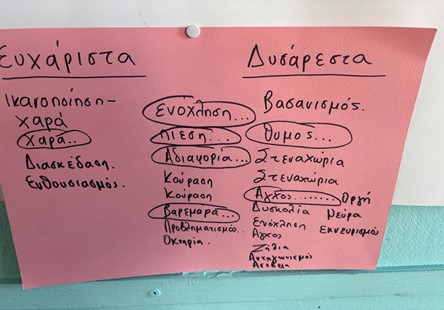 Ευχάριστα
Ικανοποίηση-
χαρά
Χαρά..
Διασκέδαση.
Ενθουσιασμός.
Ενόχληση...
Πίεση...
Αδιαφορία...
Κούραση
Κούραση
Βαρεμάρα...
Προβληματισμός..
Οκνηρία.
Δυσάρεστα
Βασανισμός.
Θυμός...
Στεναχώρια
Στεναχώρια
Άγχος........ Οργή
Δυσκολία Νεύρα
Ενόχληση Εκνευρισμός
Άγχος
Ζήλια
Ανταγωνισμός